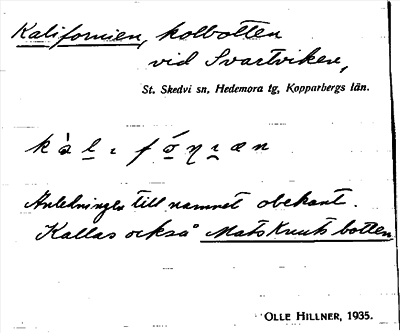 Kalifornien, kolbotten
vid Svartviken,
St. Skedvi sn, Hedemora tg, Kopparbergs län.
Anledningen till namnet obekant.
Kallas också Mats Knuts botten
OLLE HILLNER, 1935.